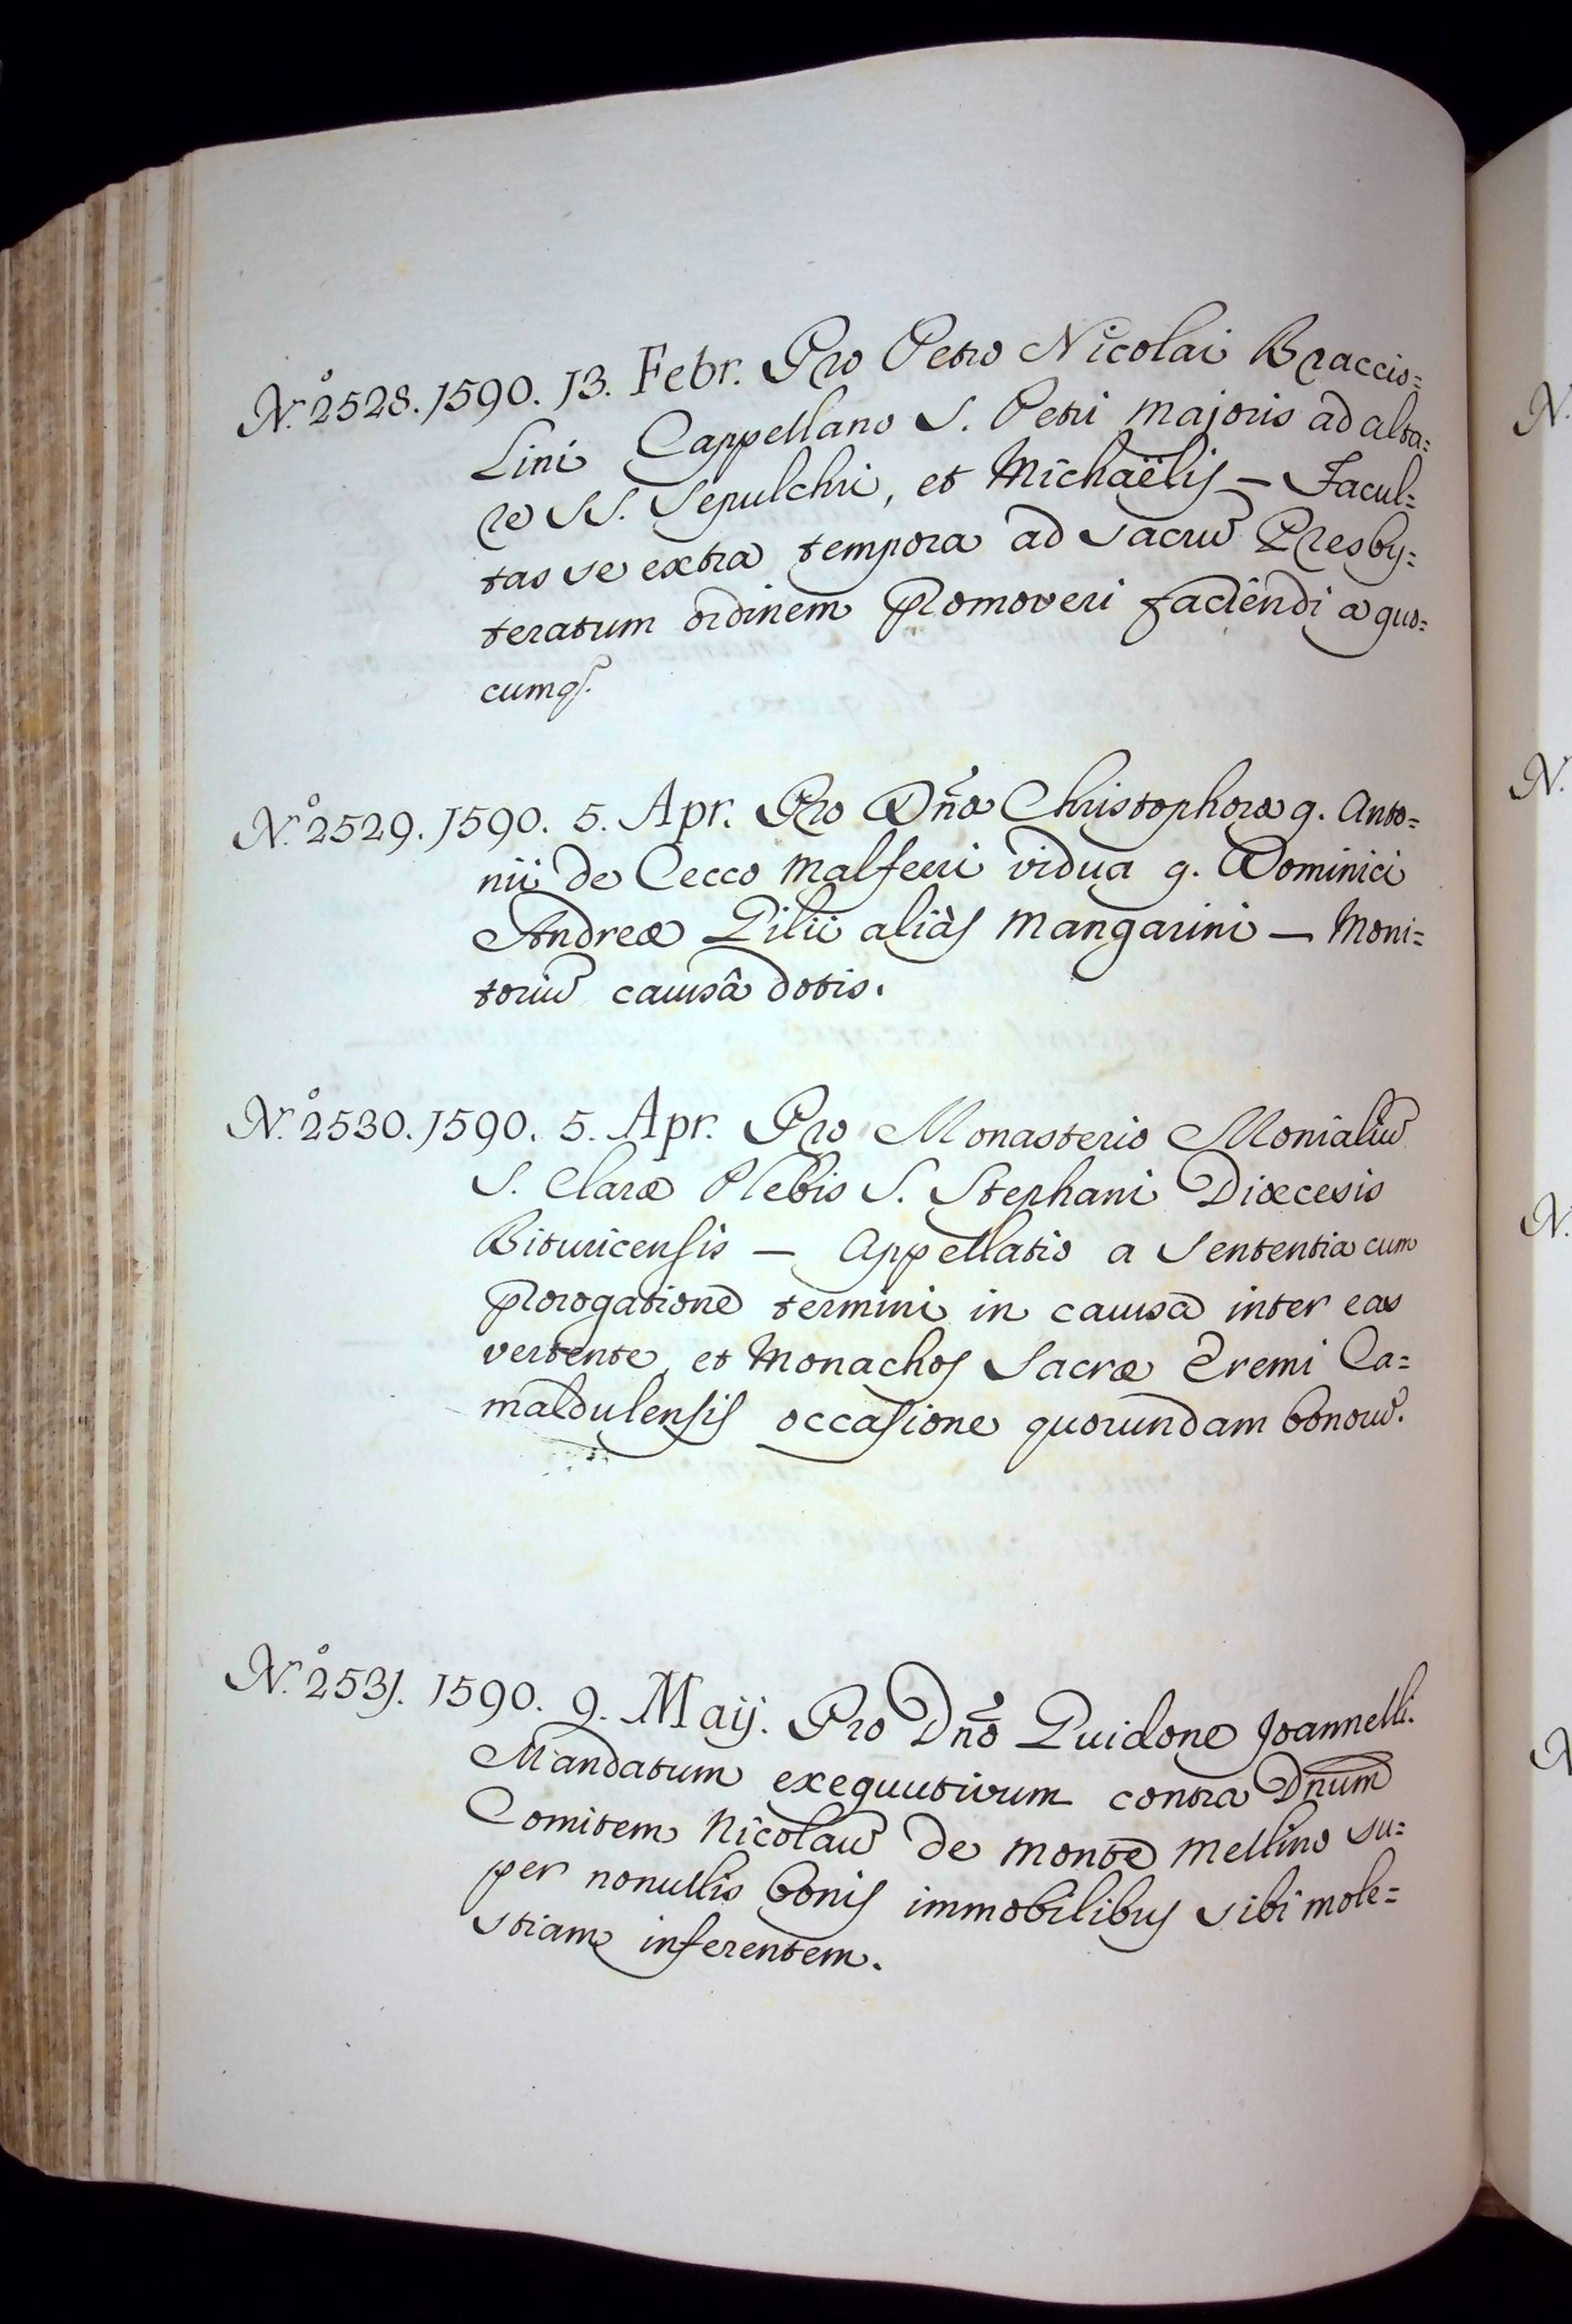 N.º 2528. 1590. 13. Febr. Pro Petro Nicolai Braccio=
Lini Cappellano S. Petri Majoris ad alta=
re SS. Sepulchri, et Michaëlis – Facul=
tas se extra tempora ad sacrũ Presby=
teratum ordinem promoveri faciendi a quo=
cumq.
N.º 2529. 1590. 5. Apr. Pro Dñã Christophora q. Anto=
nii de Cecco Malferri vidua q. Dominici
Andreæ Pilii aliàs Mangarini – Moni=
toriũ causâ dotis.
N.º 2530. 1590. 5. Apr. Pro Monasterio Monialiũ
S. Claræ Plebis S. Stephani Diœcesis
Bituricensis – Appellatio a Sententia cum
prorogatione termini in causa inter eas
vertente, et Monachos Sacræ Eremi Ca=
maldulensis occasione quorundam bonorũ.
N.º 2531. 1590. 9. Maij. Pro Dño Guidone Joannelli.
Mandatum exequutivum contra Dñum
Comitem Nicolaũ de Monte Mellino su=
per nonullis bonis immobilibus sibi mole=
stiam inferentem.
N.
N.
N.
N